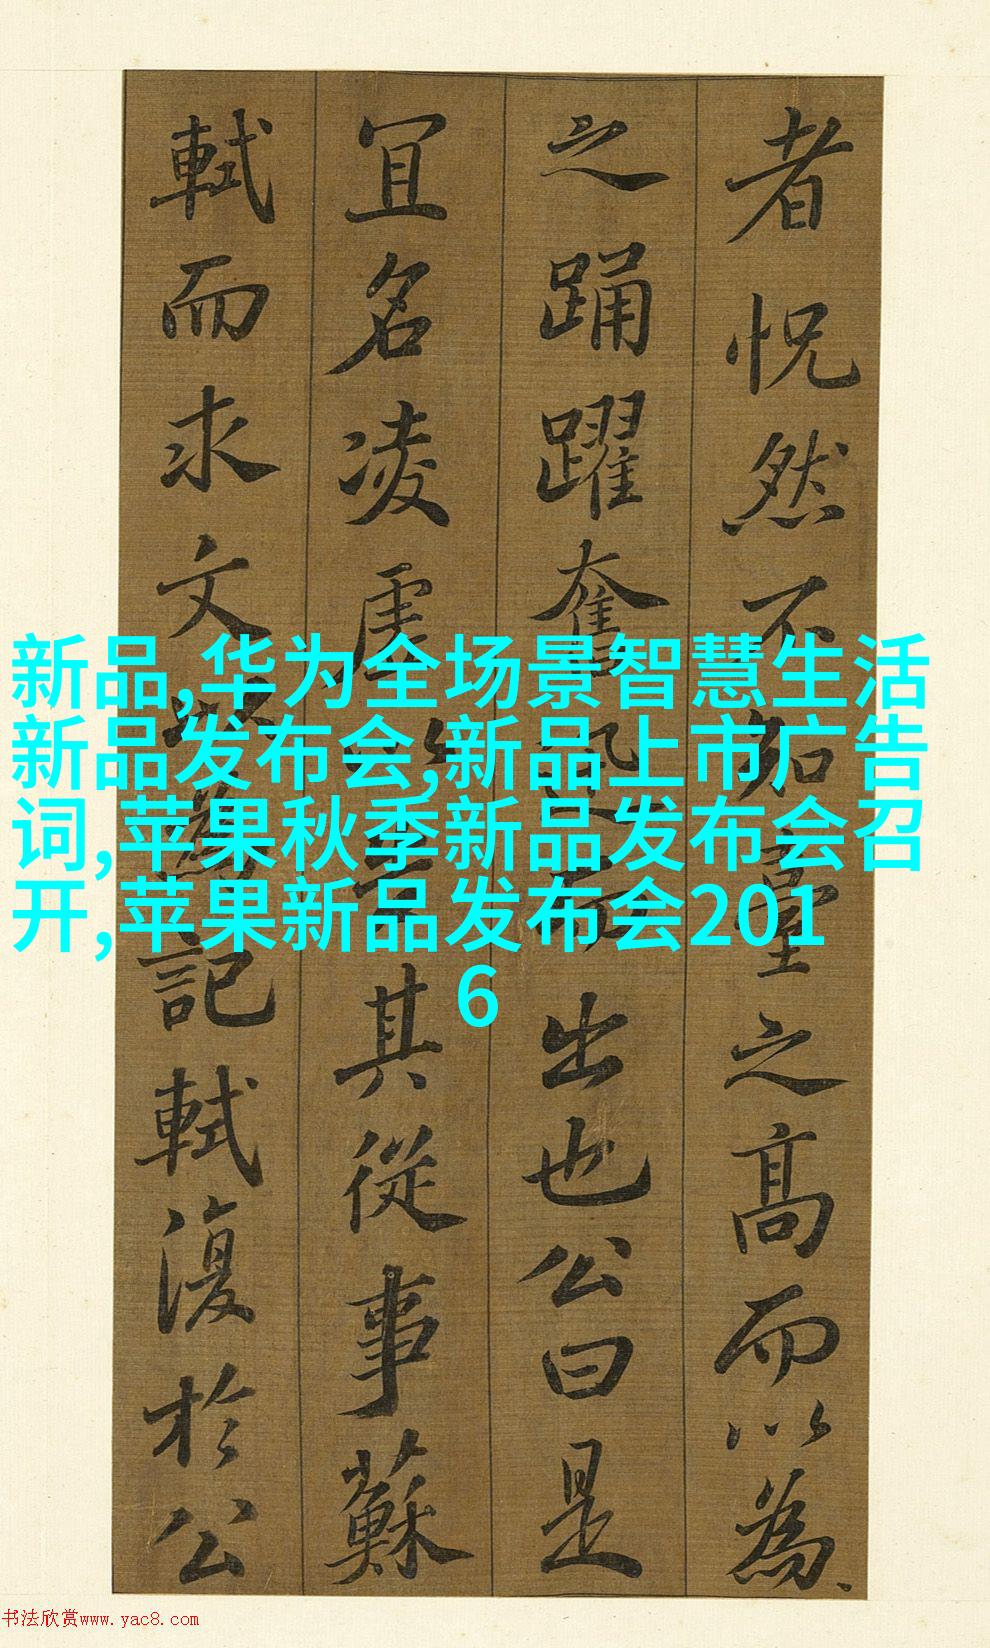 者怳然不知臺之髙而以為
之踊躍奮迅而出也公曰是
冝名凌虗以告其從事蘇
軾而求文以為記軾復於公
新品,华为全场景智慧生活
新品发布会,新品上市广告
词,苹果秋季新品发布会召
开,苹果新品发布会201
6
书法欣赏www.yac8.com